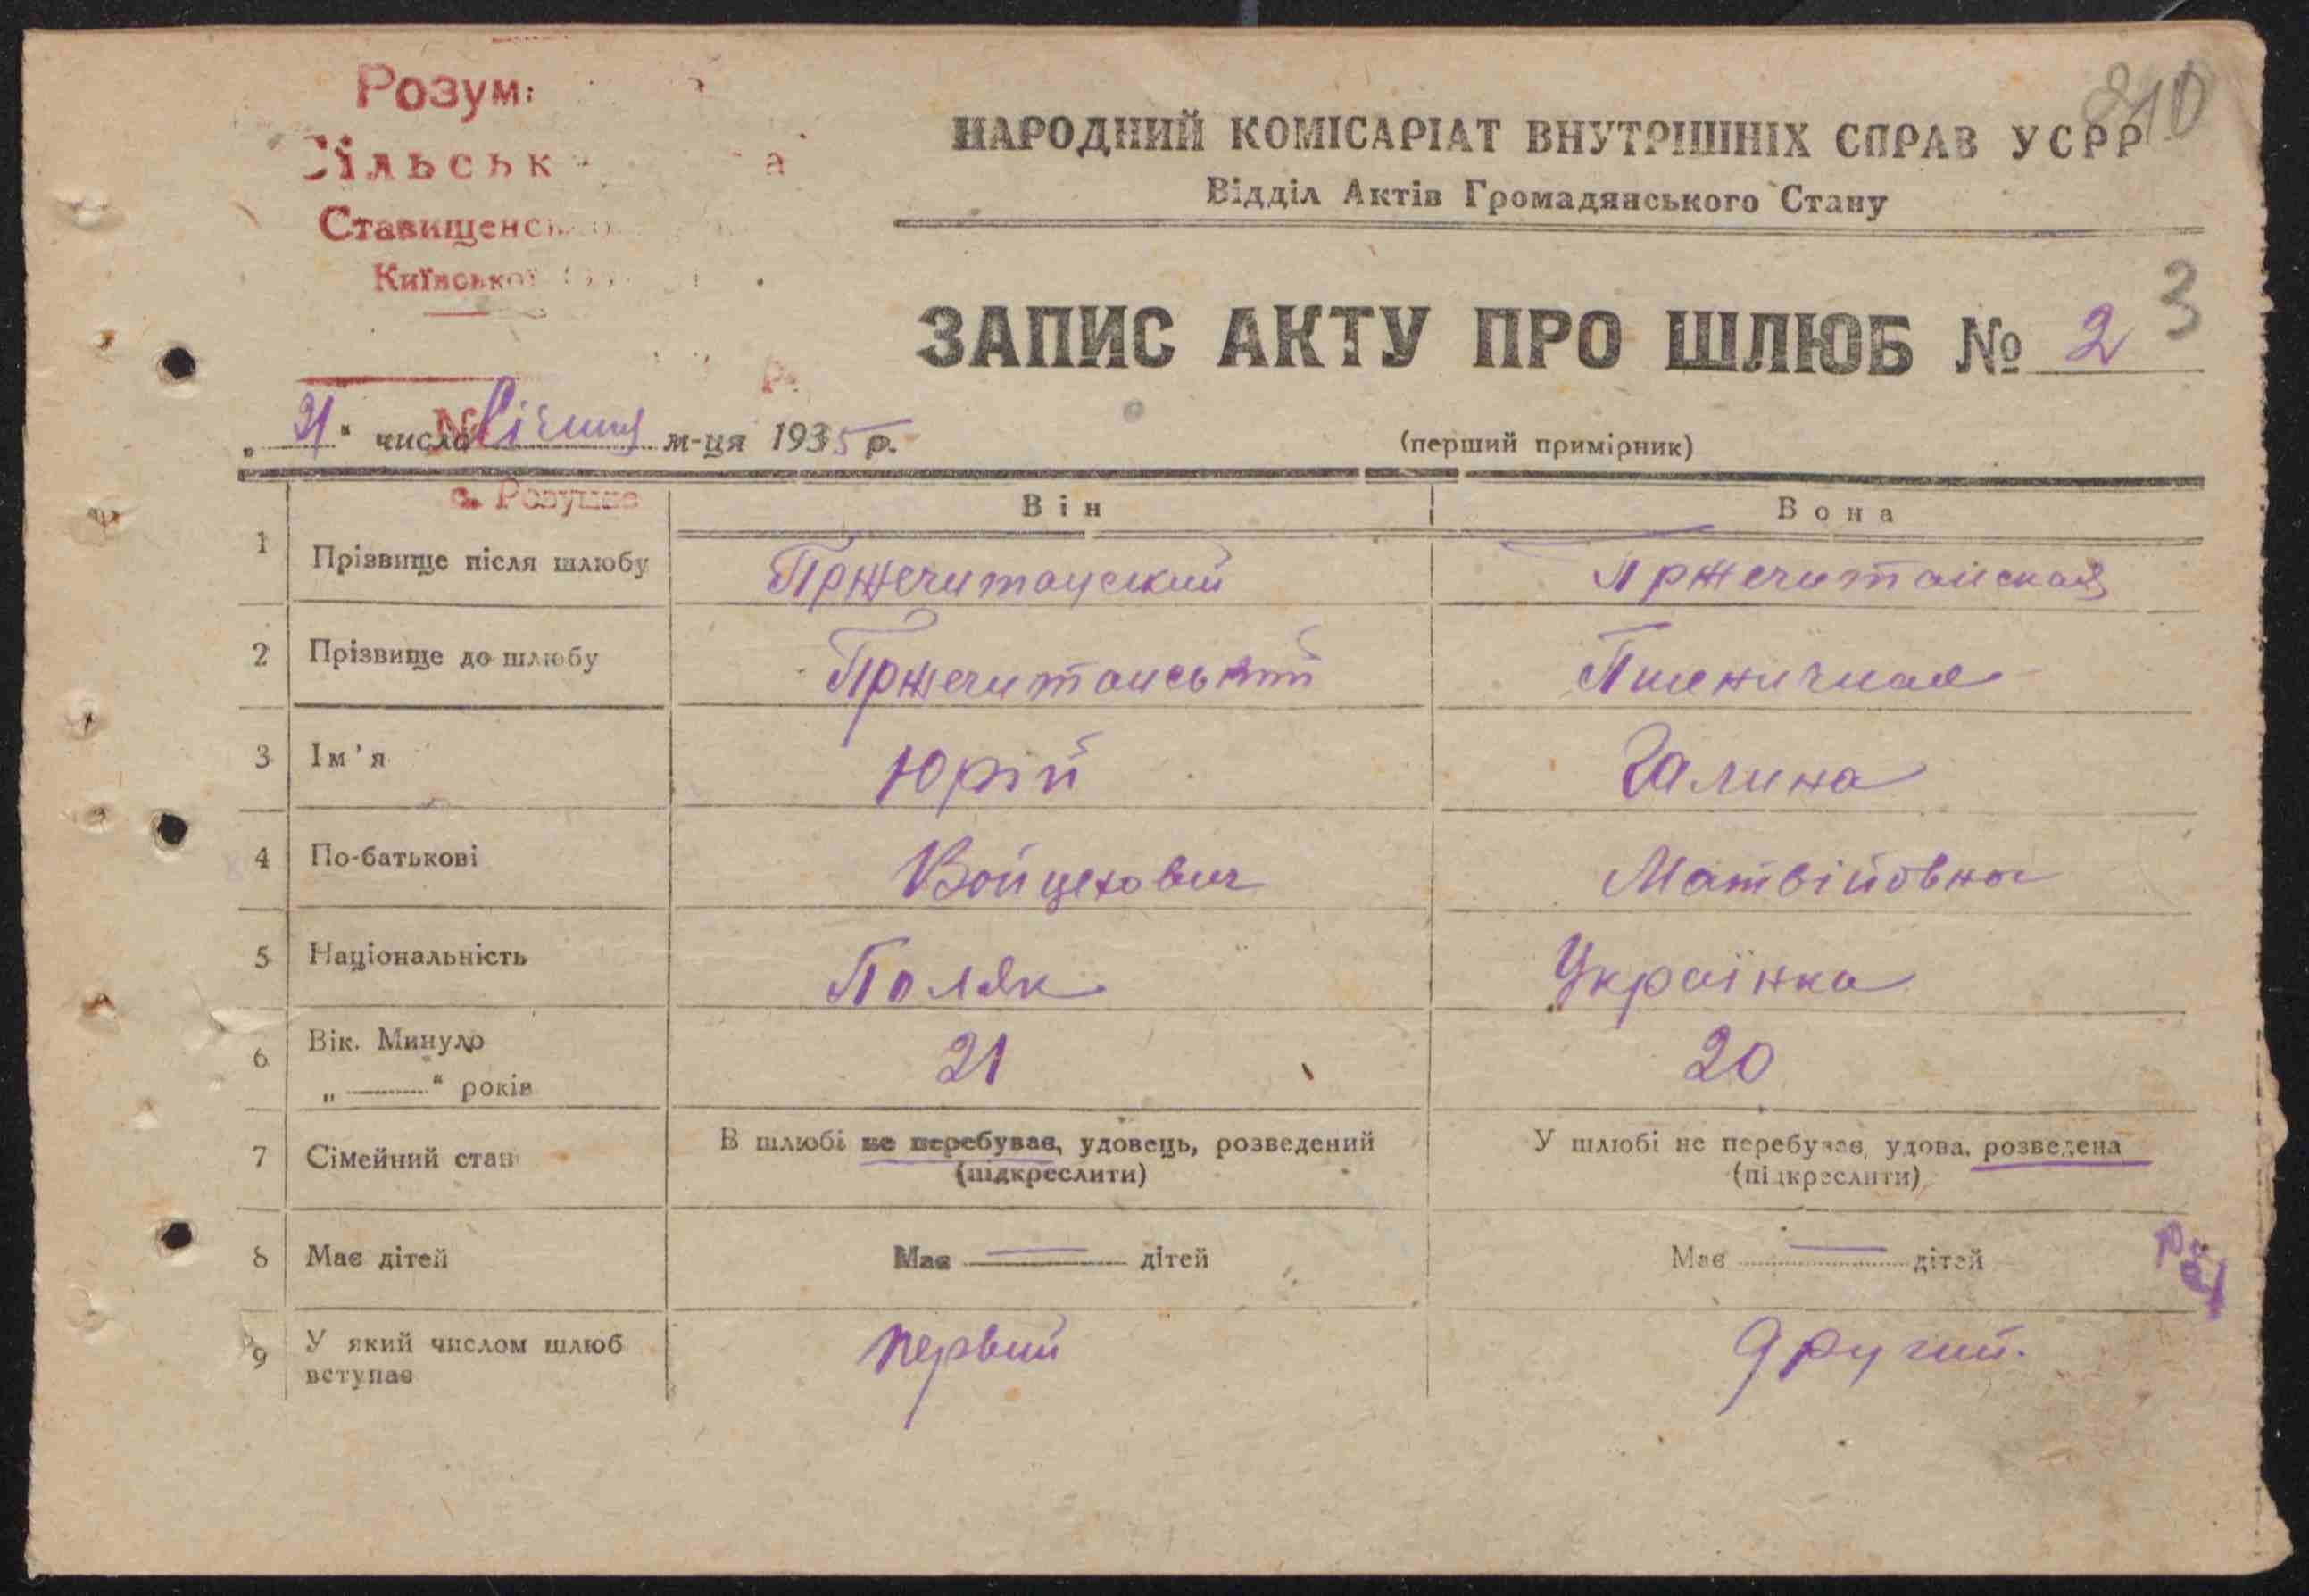 Розум
Сільськ а
Ставищенс
Київської
810
НАРОДНИЙ КОМІСАРІАТ ВНУТРІШНІХ СПРАВ УСРР
Відділ Актів Громадянського Стану
ЗАПИС АКТУ ПРО ШЛЮБ № 2
3
р.
№
„21“ число Січния м-ця 1935 р.
(перший примірник)
с. Розумне
Він Вона
1 Прізвище після шлюбу Пржечитанский Пржечитанская
2 Прізвище до шлюбу Пржечитанський Пшеничная
3 Ім'я Юрій Галина
4 По-батькові Войцехович Матвійовна
5 Національність Поляк Українка
6 Вік. Минуло 21 20
„ “ років
7 Сімейний стан В шлюбі не перебував, удовець, розведений У шлюбі не перебував, удова, розведена
(підкреслити) (підкреслити)
8 Має дітей Має — дітей Має — дітей
9 У який числом шлюб первий другий.
вступає